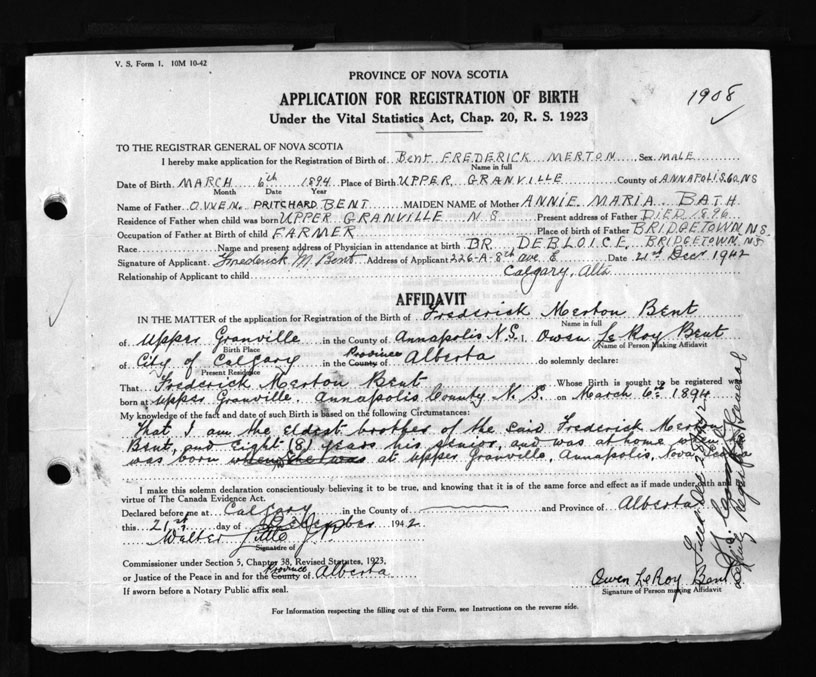 V. S. Form 1. 10M 10-42
PROVINCE OF NOVA SCOTIA
1908
APPLICATION FOR REGISTRATION OF BIRTH
Under the Vital Statistics Act, Chap. 20, R. S. 1923
TO THE REGISTRAR GENERAL OF NOVA SCOTIA
I hereby make application for the Registration of Birth of Bent FREDERICK MERTON Sex MALE
Name in full
Date of Birth MARCH 6th 1894 Place of Birth UPPER GRANVILLE County of ANNAPOLIS CO. NS
Month Date Year
Name of Father OWEN PRITCHARD BENT MAIDEN NAME of Mother ANNIE MARIA BATH
Residence of Father when child was born UPPER GRANVILLE N S Present address of Father DIED 1896
Occupation of Father at Birth of child FARMER Place of birth of Father BRIDGETOWN N.S.
Race Name and present address of Physician in attendance at birth DR DEBLOICE, BRIDGETOWN, NS
Signature of Applicant Frederick M. Bent Address of Applicant 226-A-8th ave E Date 21st Decr 1942
Relationship of Applicant to child Calgary, Alta
AFFIDAVIT
IN THE MATTER of the application for Registration of the Birth of Frederick Merton Bent
Name in full
of Upper Granville in the County of Annapolis N.S. I, Owen LeRoy Bent
Birth Place Name of Person Making Affidavit
of City of Calgary in the County of Province Alberta do solemnly declare:
Present Residence
That Frederick Merton Bent Whose Birth is sought to be registered was
born at Upper Granville. Annapolis County N. S. on March 6th 1894
My knowledge of the fact and date of such Birth is based on the following Circumstances:
That I am the eldest brother of the said Frederick Merton
Bent, and eight (8) years his senior, and was at home when he
was born at Upper Granville, Annapolis, Nova Scotia
I make this solemn declaration conscientiously believing it to be true, and knowing that it is of the same force and effect as if made under oath and
virtue of The Canada Evidence Act.
Declared before me at Calgary in the County of and Province of Alberta
this 21st day of December 1942
Walter Little J.P.
Signature of
Commissioner under Section 5, Chapter 38, Revised Statutes, 1923,
or Justice of the Peace in and for the County of Province Alberta
If sworn before a Notary Public affix seal.
Owen LeRoy Bent
Signature of Person making Affidavit
For Information respecting the filling out of this Form, see Instructions on the reverse side.
Deputy Registrar General